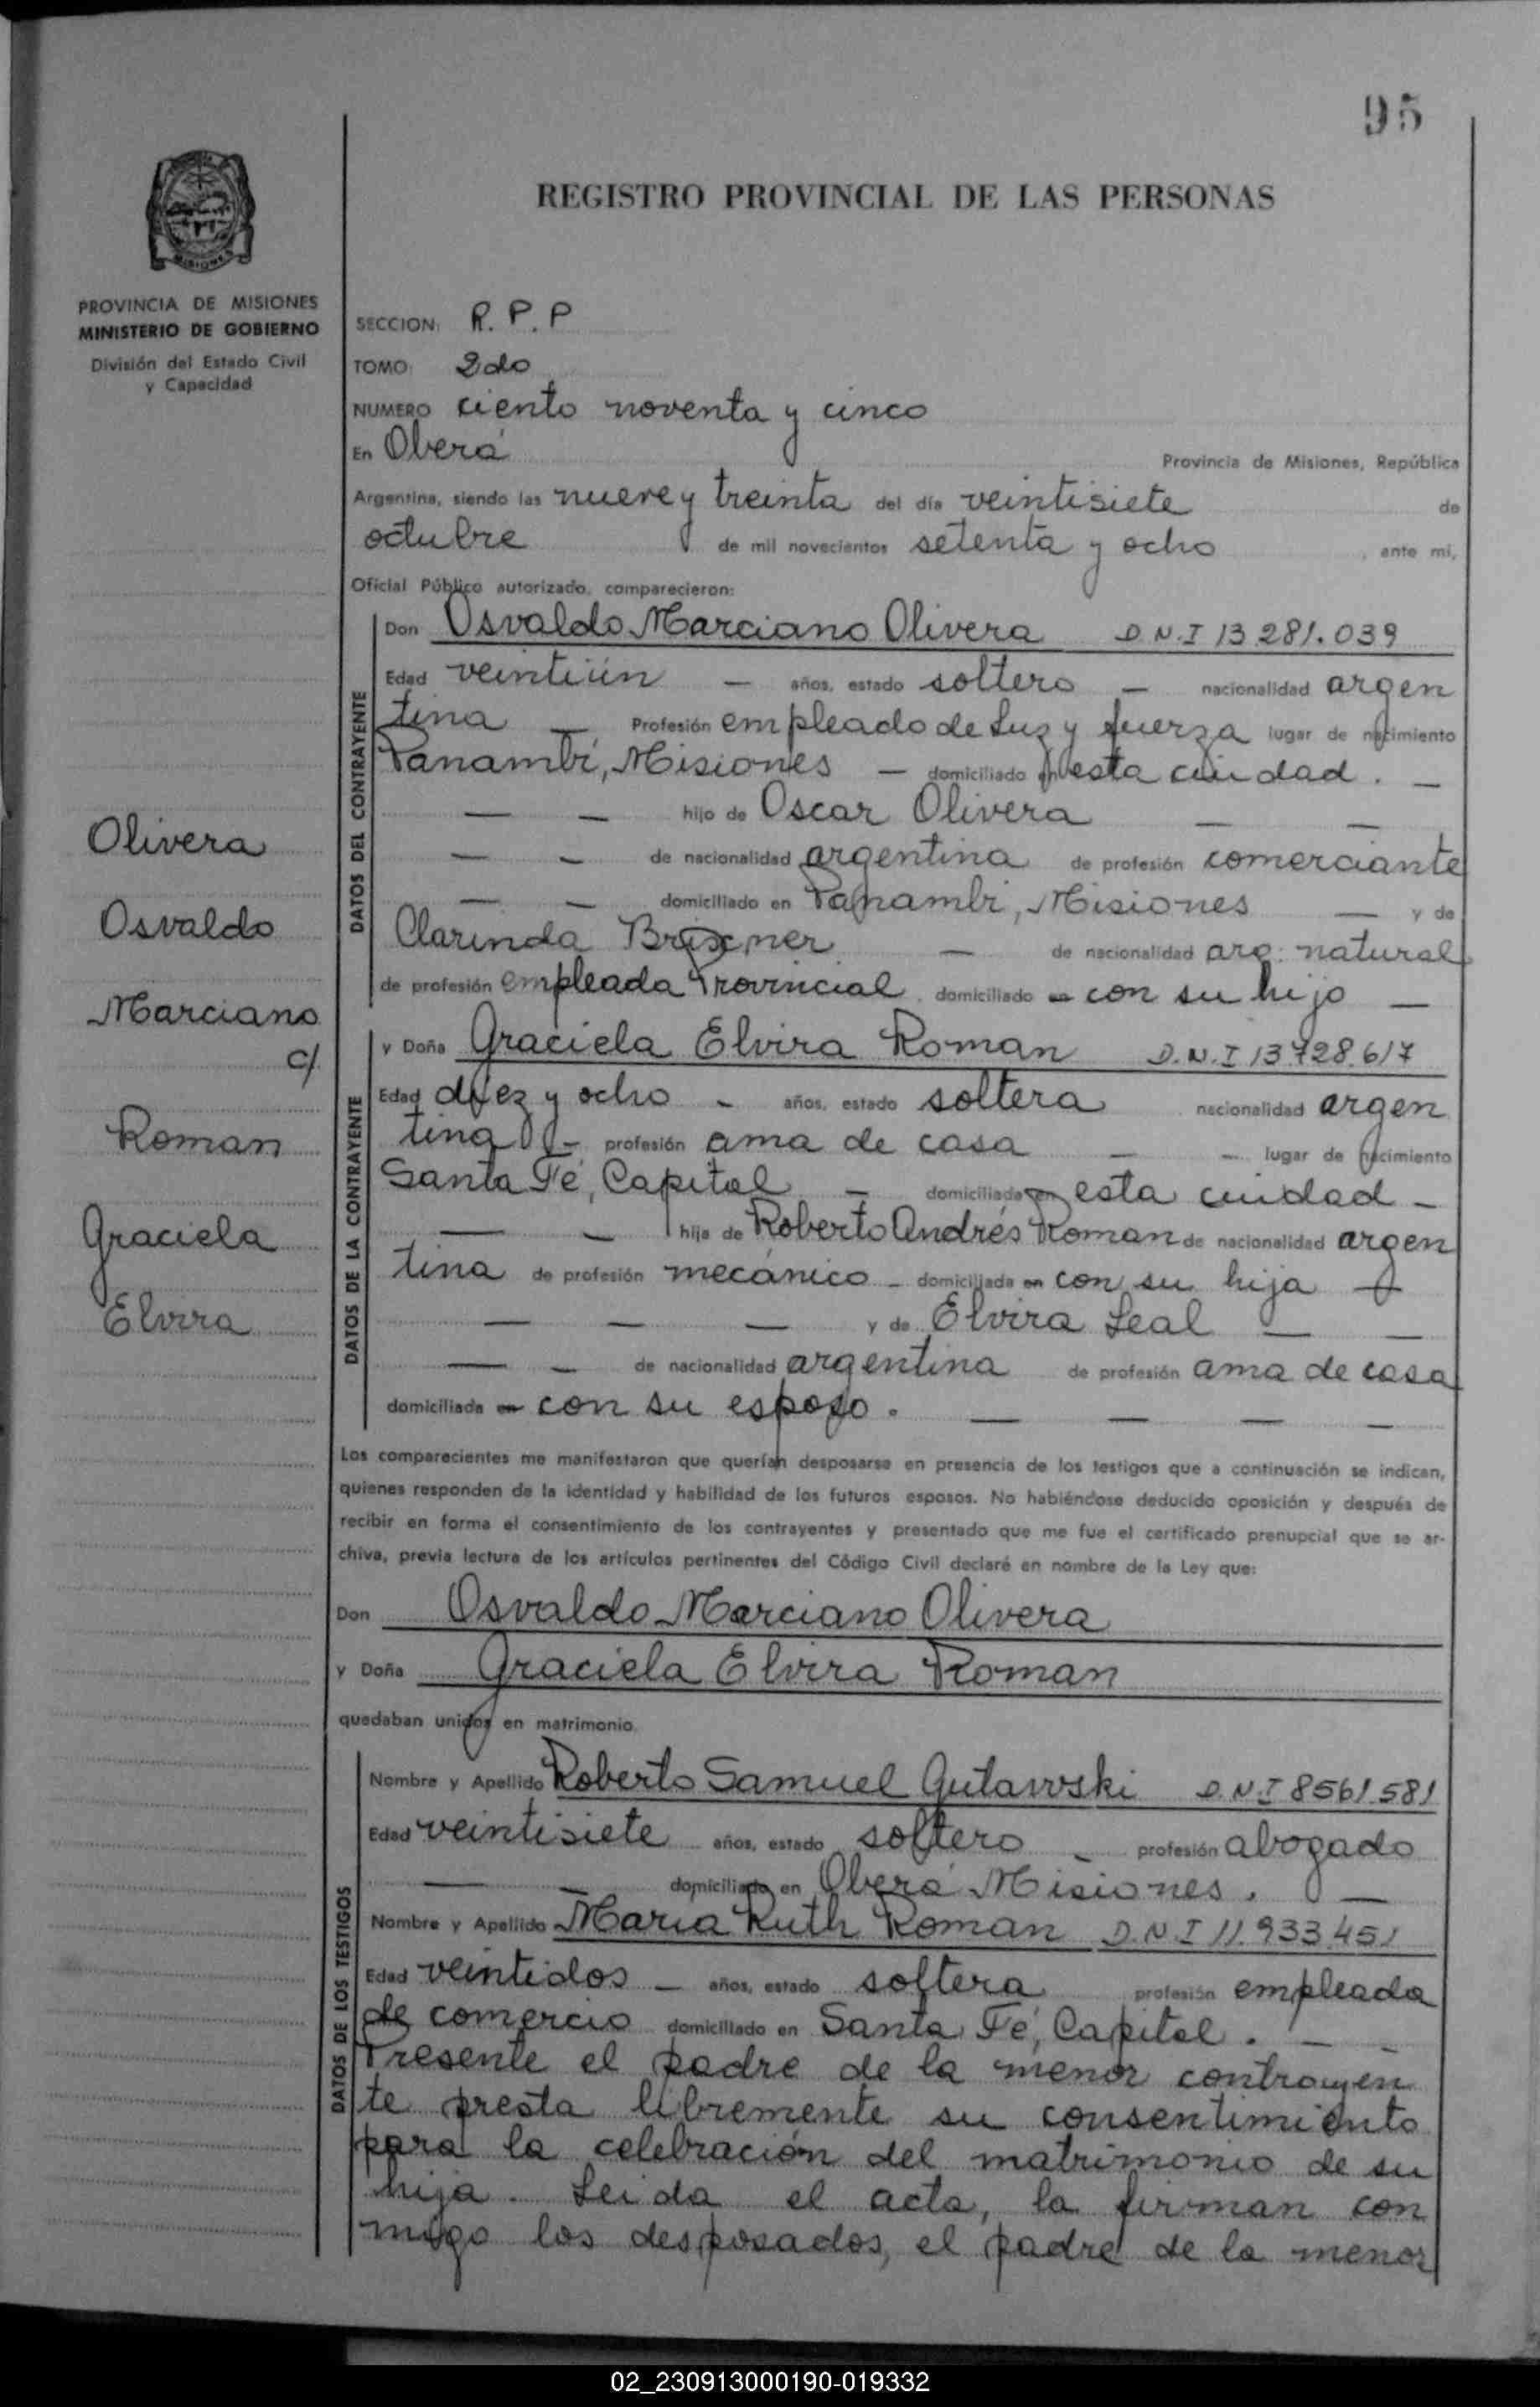 95
REGISTRO PROVINCIAL DE LAS PERSONAS
MISIONES
PROVINCIA DE MISIONES
MINISTERIO DE GOBIERNO
División del Estado Civil
y Capacidad
SECCION: R. P. P
TOMO: 2do
NUMERO ciento noventa y cinco
En Oberá Provincia de Misiones, República
Argentina, siendo las nueve y treinta del día veintisiete de
octubre de mil novecientos setenta y ocho, ante mi,
Oficial Público autorizado, comparecieron:
DATOS DEL CONTRAYENTE
Don Osvaldo Marciano Olivera D.N.I 13.281.039
Edad veintiún — años, estado soltero — nacionalidad argen
tina — Profesión empleado de Luz y fuerza lugar de nacimiento
Panambí, Misiones — domiciliado en esta ciudad. —
— — hijo de Oscar Olivera — —
— — de nacionalidad argentina de profesión comerciante
— — domiciliado en Panambi, Misiones — y de
Clarinda Brixner — de nacionalidad arg. natural
de profesión empleada Provincial domiciliado en con su hijo —
DATOS DE LA CONTRAYENTE
y Doña Graciela Elvira Roman D.N.I 13.728.617
Edad diez y ocho - años, estado soltera nacionalidad argen
tina - profesión ama de casa — — lugar de nacimiento
Santa Fé, Capital — domiciliada en esta ciudad -
— — hija de Roberto Andrés Roman de nacionalidad argen
tina de profesión mecánico - domiciliada en con su hija —
— — — y de Elvira Leal — —
— — de nacionalidad argentina de profesión ama de casa
domiciliada en con su esposo. — — — —
Los comparecientes me manifestaron que querían desposarse en presencia de los testigos que a continuación se indican,
quienes responden de la identidad y habilidad de los futuros esposos. No habiéndose deducido oposición y después de
recibir en forma el consentimiento de los contrayentes y presentado que me fue el certificado prenupcial que se ar-
chiva, previa lectura de los artículos pertinentes del Código Civil declaré en nombre de la Ley que:
Don Osvaldo Marciano Olivera
y Doña Graciela Elvira Roman
quedaban unidos en matrimonio.
DATOS DE LOS TESTIGOS
Nombre y Apellido Roberto Samuel Gutawski D.N.I 8561.581
Edad veintisiete años, estado soltero - profesión abogado
— — domiciliado en Oberá Misiones. —
Nombre y Apellido Maria Ruth Roman D.N.I 11.933.451
Edad veintidos — años, estado soltera profesión empleada
de comercio domiciliado en Santa Fé, Capital. — -
Presente el padre de la menor contrayen
te presta libremente su consentimiento
para la celebración del matrimonio de su
hija. Leida el acta, la firman con
migo los desposados, el padre de la menor
Olivera
Osvaldo
Marciano
c/
Roman
Graciela
Elvira
02_230913000190-019332